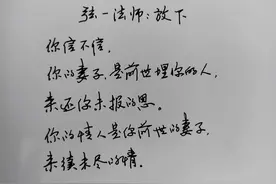 弘一法师：放下
你信不信，
你的妻子，是前世埋你的人，
来还你未报的恩。
你的情人是你前世的妻子，
来续未尽的情。